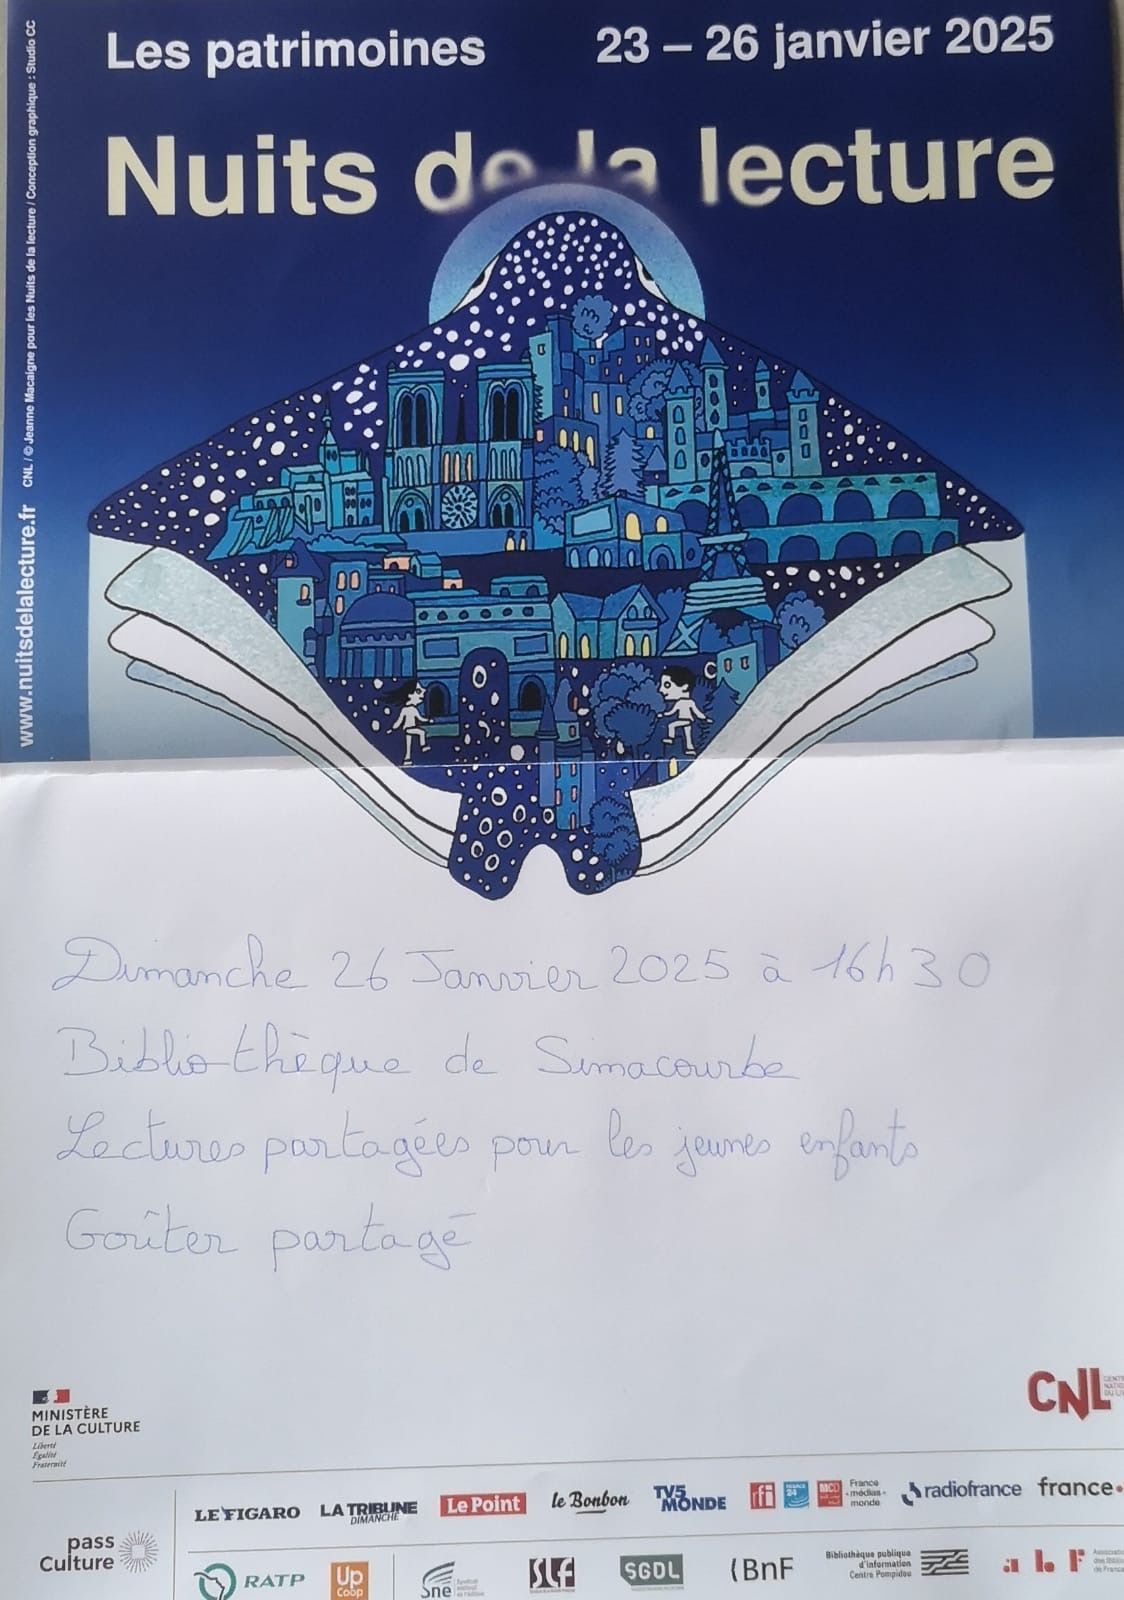 Les patrimoines 23 – 26 janvier 2025
Nuits de la lecture
www.nuitsdelalecture.fr CNL / © Jeanne Macaigne pour les Nuits de la lecture / Conception graphique : Studio CC
Dimanche 26 Janvier 2025 à 16h30
Bibliothèque de Simacourbe
Lectures partagées pour les jeunes enfants
Goûter partagé
MINISTÈRE
DE LA CULTURE
Liberté
Égalité
Fraternité
CNL
pass
Culture
LE FIGARO LA TRIBUNE DIMANCHE Le Point le Bonbon TV5 MONDE rfi FRANCE 24 MCD France médias monde radiofrance france
RATP Up Coop Sne SLF SGDL BnF Bibliothèque publique d'information Centre Pompidou abF